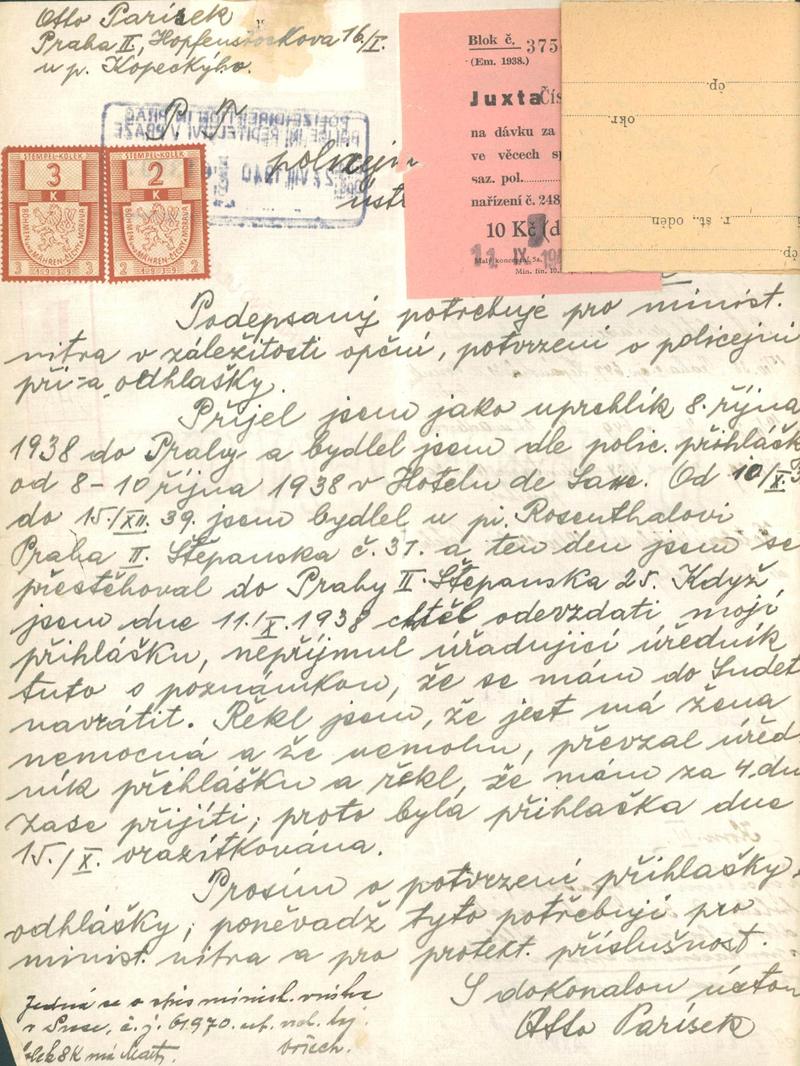 Otto Parisek
Praha II, Hopfenštockova 16/I.
u p. Kopeckýho.
Blok č. 375
(Em. 1938.)
Juxta Čís
na dávku za
ve věcech sp
saz. pol.
nařízení č. 248
10 Kč (d
11 IX 19
Min. fin. 10.
čp.
okr.
r. st., oděn
P. T.
POLIZEIDIREKTION IN PRAG
POLICEJNÍ ŘEDITELSTVÍ V PRAZE
22 VIII 1940
policejn
ústř
STEMPEL-KOLEK
3
K
BÖHMEN u. MÄHREN-ČECHY a MORAVA
3 1939 3
STEMPEL-KOLEK
2
K
BÖHMEN u. MÄHREN-ČECHY a MORAVA
2 1939 2
Podepsaný potřebuje pro minist.
nitra v záležitosti opční, potvrzení o policejní
při-a odhlašky.
Přijel jsem jako uprchlík 8. října
1938 do Prahy a bydlel jsem dle polic. přihlášk
od 8-10 října 1938 v Hotelu de Saxe. Od 10/X. 3
do 15./XII. 39. jsem bydlel u pí. Rosenthalovi
Praha II. Štěpanska č. 37. a ten den jsem se
přestěhoval do Prahy II. Štěpanska 25. Když
jsem dne 11./X. 1938 chtěl odevzdati moji
přihlášku, nepříjmul úřadující úředník
tuto s poznámkou, že se mám do Sudet
navrátit. Řekl jsem, že jest má žena
nemocná a že nemohu, převzal úřed
ník přihlášku a řekl, že mám za 4. dn
zase přijíti; proto byla přihlaška dne
15./X. orazítkována.
Prosím o potvrzení přihlašky
odhlášky, poněvadž tyto potřebuji pro
minist. nitra a pro protekt. příslušnost.
S dokonalou úctou
Otto Parísek
Jedná se o spis minist. vnitra
v Praze, č. j. 61970.